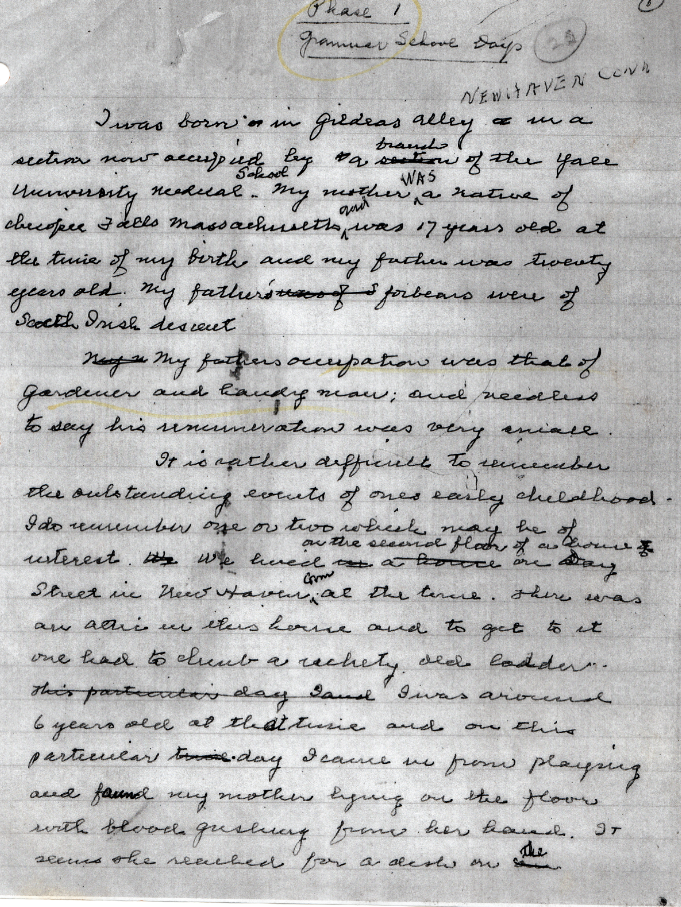 Phase 1
Grammar School Days
29
NEWHAVEN CONN
I was born in Gildeas alley in a
branch
section now occupied by a section of the Yale
School
WAS
University Medical. My mother a native of
and
checopee Falls Massachusetts, was 17 years old at
the time of my birth and my father was twenty
years old. My father's was of S forbears were of
Scotch Irish descent
My fathers occupation was that of
Gardener and handy man; and needless
to say his renumeration was very small.
It is rather difficult to remember
the outstanding events of ones early childhood.
I do remember one or two which may be of
on the second floor of a house
interest. We We lived in a house on Day
Conn
Street in New Haven, at the time. There was
an attic in this home and to get to it
one had to climb a rickety old ladder.
This particular day I and I was around
6 years old at that time and on this
particular time day I came in from playing
and found my mother lying on the floor
with blood gushing from her hand. It
the
seems she reached for a dish on